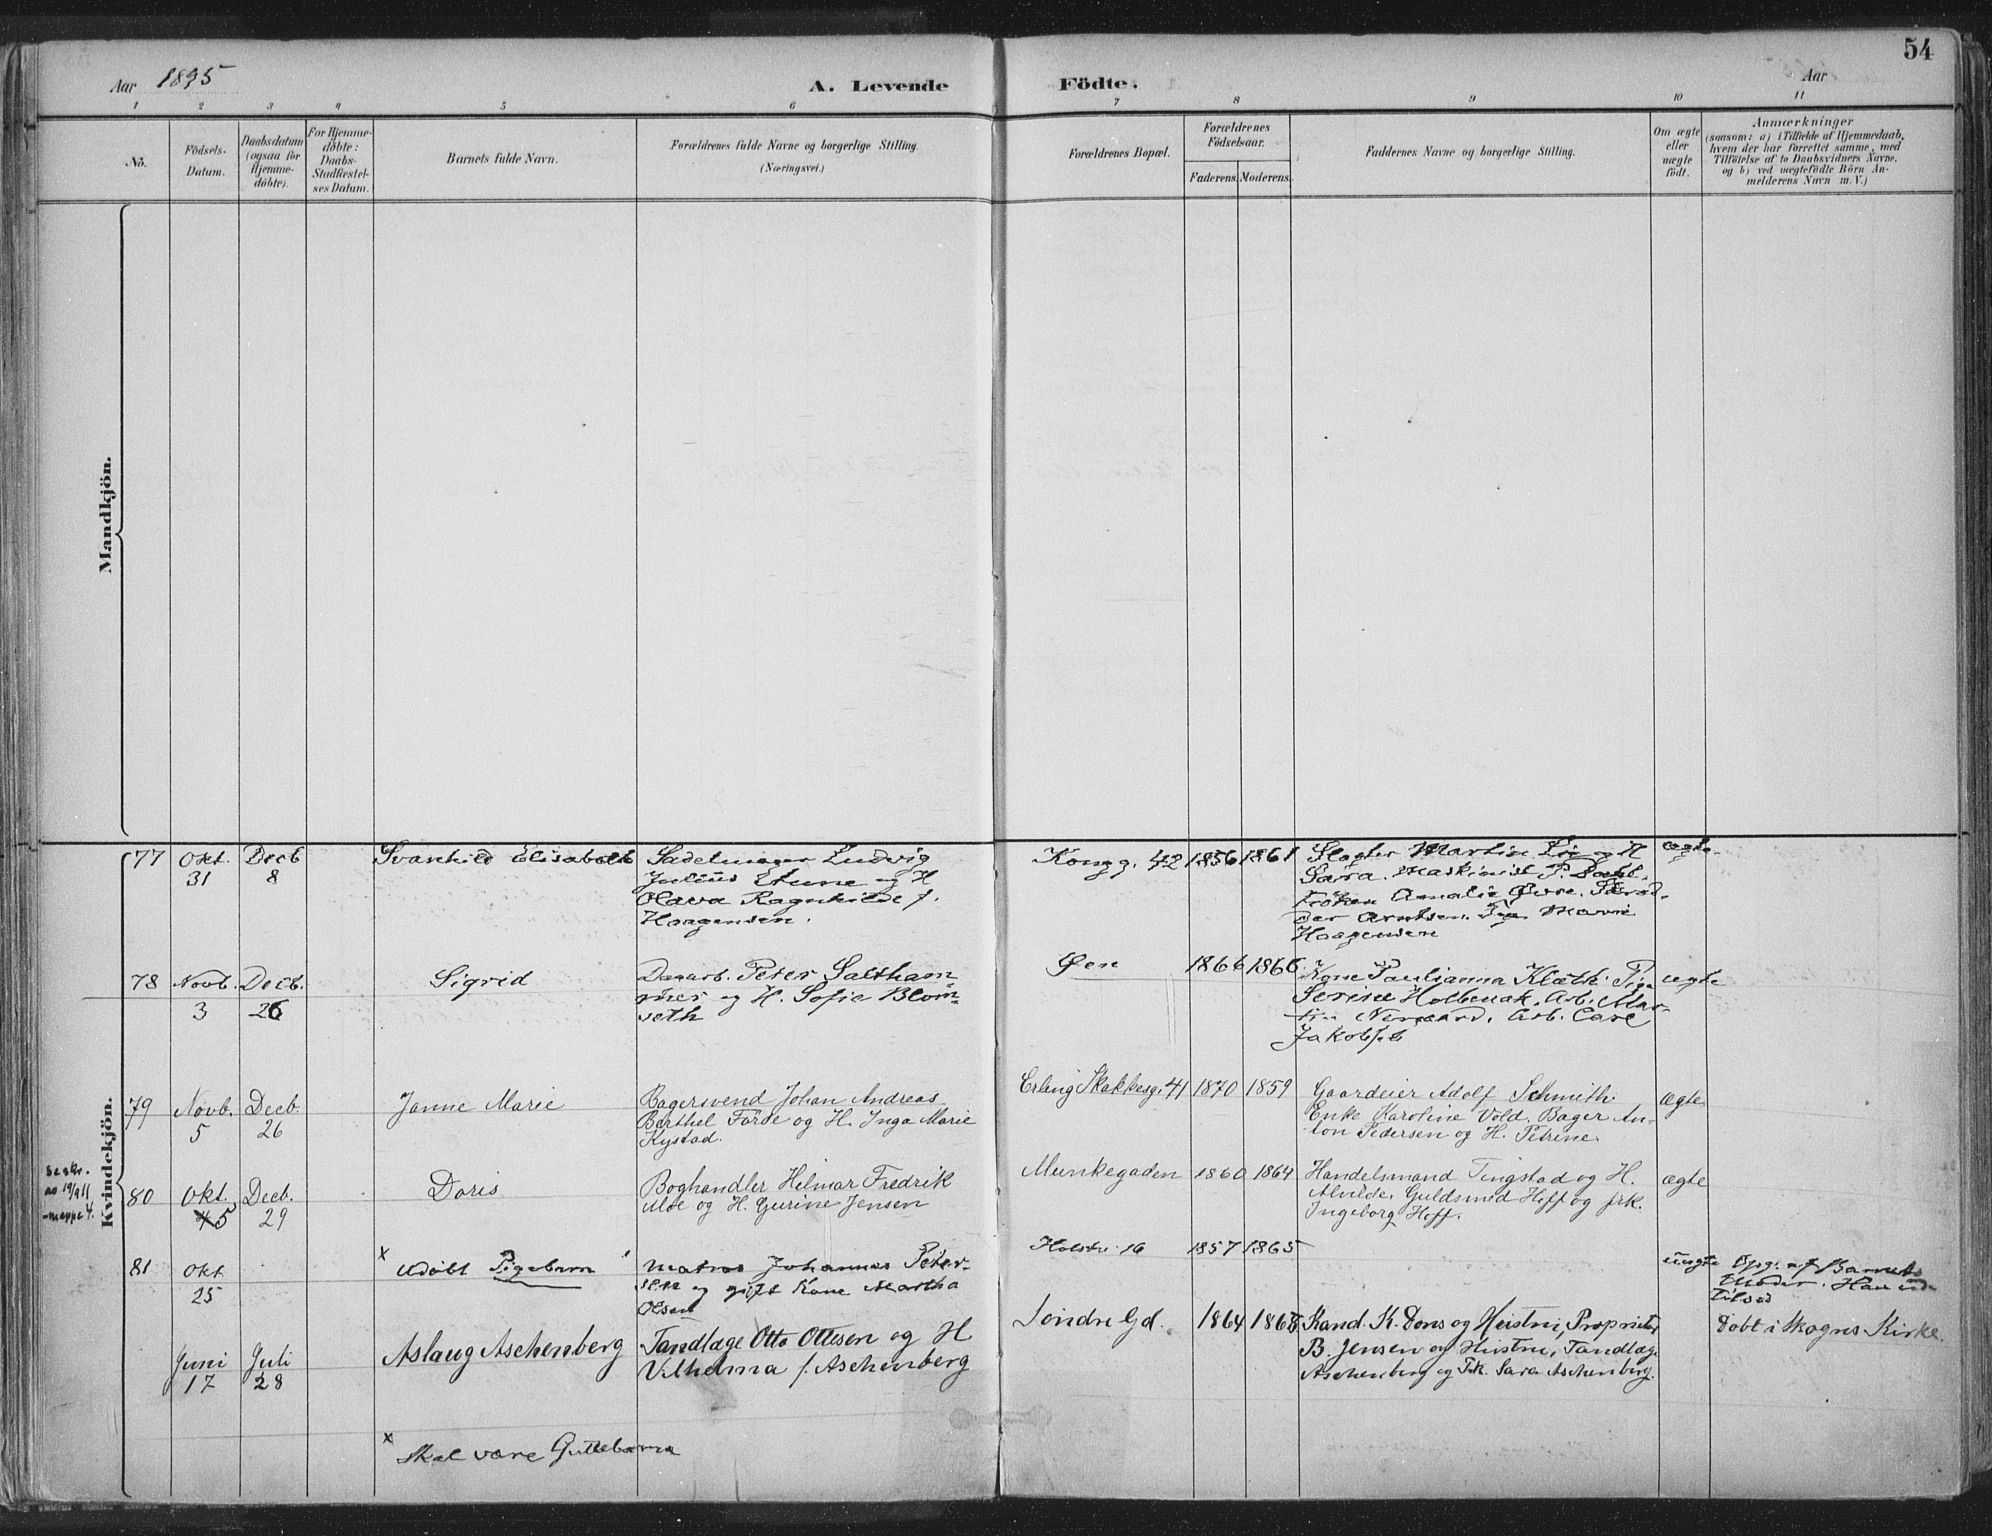 54
Aar 1895 A. Levende Födte. Aar
1 2 3 4 5 6 7 8 9 10 11
No.
Födsels-Datum.
Daabsdatum (ogsaa for Hjemme-döbte).
For Hjemme-döbte: Daabs-Stadfæstel-ses Datum.
Barnets fulde Navn.
Forældrenes fulde Navne og borgerlige Stilling.
(Næringsvei.)
Forældrenes Bopæl.
Forældrenes Födselsaar.
Faderens. Moderens.
Faddernes Navne og borgerlige Stilling.
Om ægte eller uægte födt.
Anmærkninger
(saasom: a) i Tilfælde af Hjemmedaab,
hvem der har forrettet samme, med
Tilföielse af to Daabsvidners Navne,
og b) ved uægtefödte Börn An-
melderens Navn m. V.)
Mandkjön.
Kvindekjön.
77 Okt. 31 Decb 8 Svanhild Elisabeth
Sadelmager Ludvig
Julius Stune og H
Olava Ragnhilde f.
Haagensen.
Kongg. 42 1856 1861
Slagter Martin og H
Sara. Maskinist P. Dahl.
Fröken Amalie Övre.
Arntsen. Marie
Haagensen
ægte.
78 Novb. 3 Decb. 26 Sigrid
Dagarb. Peter Saltham-
mer og H. Sofie Blom-
seth
Øen 1866 1866
Kone Paulianna Klæth. Pige
Serine Holbenak. Arb. Mar-
tin Nergaard. Arb. Carl
Jakobsen
ægte
79 Novb. 5 Decb. 26 Janne Marie
Bagersvend Johan Andreas
Berthel Förde og H. Inga Marie
Kystad.
Erling Skakkesg. 41 1870 1859
Gaardeier Adolf Schmith.
Enke Karoline Vold. Bager An-
ton Pedersen og H. Petrine.
ægte
80 Okt. 5 Decb. 29 Doris
Boghandler Hilmar Fredrik
Moe og H. Gurine Jensen
Munkegaden 1860 1864
Handelsmand Tingstad og H.
Alvilde. Guldsmed Hoff og frk.
Ingeborg Hoff.
ægte
81 Okt 25 x udöbt Pigebarn
Matros Johannes Peter-
sen og gift Kone Martha
Olsen
16 1857 1865
uægte Opg. af Barnets
Moder.
Juni 17 Juli 28 Aslaug Aschenberg
Tandlæge Otto Ottesen og H
Vilhelma f. Aschenberg
Söndre Gd. 1864 1868
Kand. K. Dons og Hustru, Proprietær
B. Jensen og Hustru, Tandlæge
Aschenberg og Frk. Sara Aschenberg.
Döbt i Skogns Kirke.
x Skal være Guttebarn